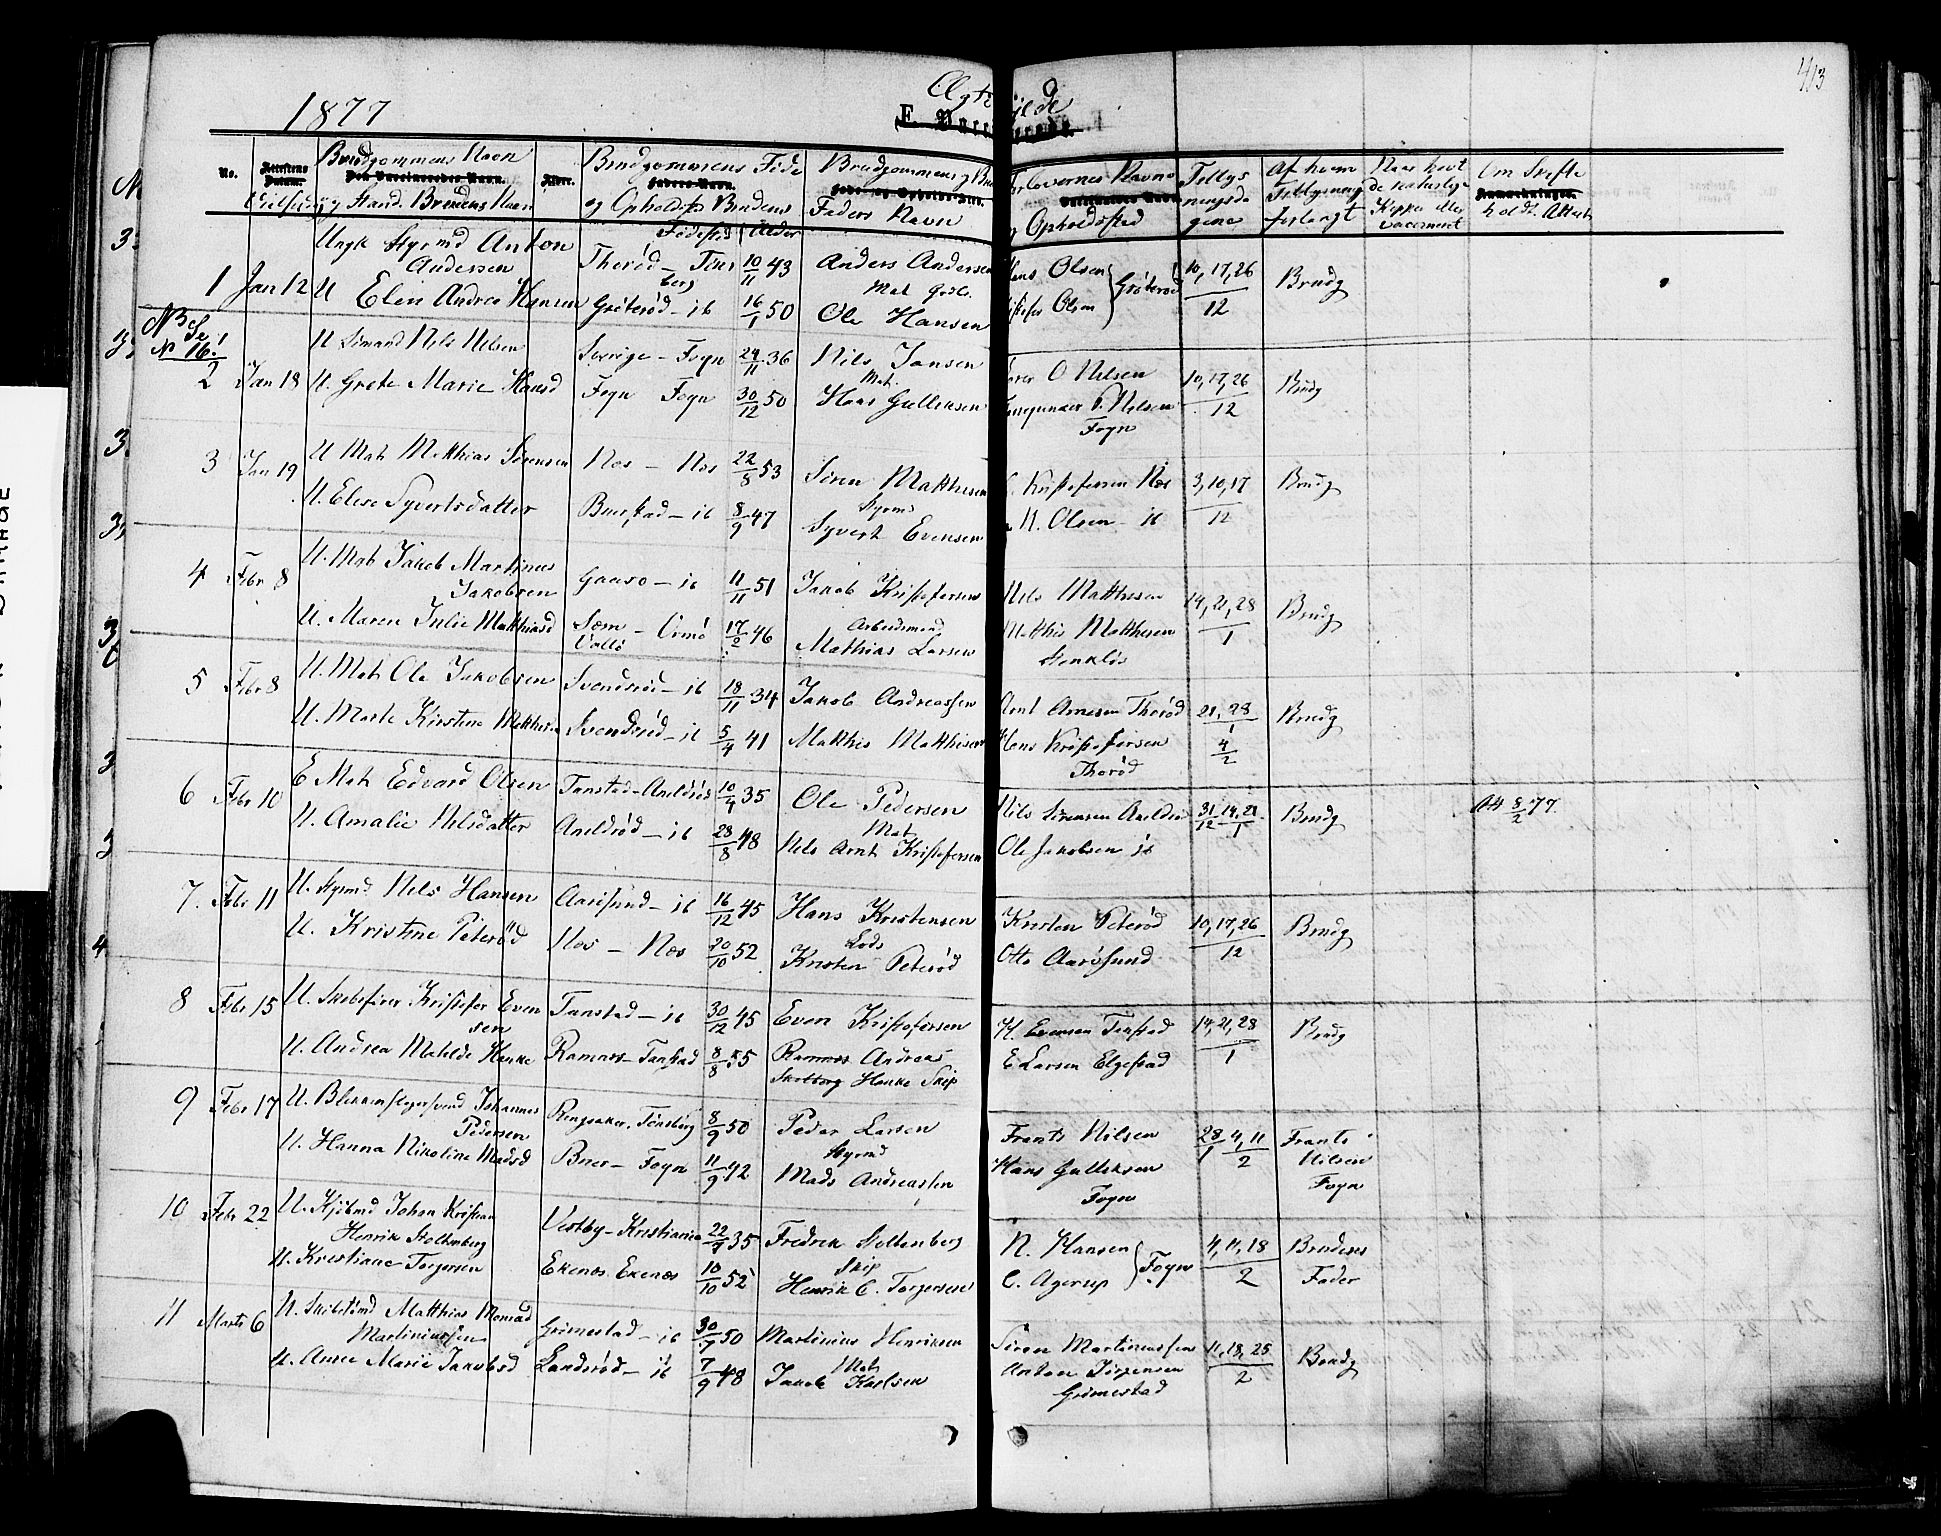 413
1877
Ægte vilde
No. Attestens Datum. Brudgommens Navn Alder. Brudgommens Føde Brudgommens og Bru Forlovernes Navne Tillys Af hvem Naar hvot Om Skifte
Vielsed og Stand. Brudens Navn og Opholdst Brudens Faders Navn Opholdssted nings da Tillysning de naturlige hold. Attest
Fødested Alder gene forlangt Kopper eller vaccineret
1 Jan 12 Ungk Styrmd Anton Andersen Therød - Tønsberg 10/11 43 Anders Andersen Hans Olsen Grøterød 10,17,26/12 Brudg
U Elen Andrea Hansen Grøterød - ib 16/1 50 Mat Godl. Ole Hansen Olsen
NB Se No 16!
2 Jan 18 U Sømand Nils Nilsen Sverige - Føyn 24/11 36 Nils Jansen O Nilsen 10,17,26/12 Brudg
U. Grete Marie Hansd Føyn Føyn 30/12 50 Mat. Hans Gulliksen P. Nilsen Føyn
3 Jan 19 U Mat Matthias Sørensen Nes - Nes 22/8 53 Søren Mathisen Kristofersen Nes 3,10,17/12 Brudg
U. Elise Syvertsdatter Buerstad - ib 8/9 47 Styrmd Syvert Evensen N. Olsen ib
4 Febr 8 U. Mat Jakob Martinus Jakobsen Gaasø - ib 11/11 51 Jakob Kristofersen Nils Matthisen 14,21,28/1 Brudg
U. Maren Julie Mathiasd Sem Vallø - Ormø 17/2 46 Arbeidsmand Mathias Larsen Matthis Matthisen Stenkløs
5 Febr 8 U. Mat Ole Jakobsen Svendsrød - ib 18/11 34 Jakob Andreassen Arnt Arnesen Therød 21,28/1 Brudg
U. Marte Kirstine Mathisd Svendsrød - ib 5/4 41 Mathis Mathisen Hans Kristofersen Therød 4/2
6 Febr 10 E Mat Edvard Olsen Tanstad - Areldrød 10/4 35 Ole Pedersen Nils Sørensen Areldrø 31/12 14,21/1 Brudg Att 8/2 77.
U. Amalie Nilsdatter Areldrød - ib 28/8 48 Mat Nils Arnt Kristofersen Ole Jakobsen ib
7. Febr 11 U. Styrmd Nils Hansen Aarøsund - ib 16/12 45 Hans Kristensen Kristen Peterød 10,17,26/12 Brudg
U. Kristine Peterød Nes - Nes 20/10 52 Lods Kristen Peterød Otto Aarøsund
8 Febr 15 U. Skibsfører Kristofer Evensen Tanstad - ib 30/12 45 Even Kristofersen H. Evensen Tanstad 14,21,28/1 Brudg
U. Andrea Matilde Henke Ramnes - Tanstad 8/8 55 Ramnes Andreas Skolborg Henke Skip E Larsen Elgestad
9 Febr 17 U. Blikkenslagersvend Johannes Pedersen Ringsaker, Tønsberg 8/9 50 Peder Larsen Frants Nilsen 28/1 4,11/2 Frants Nilsen Føyn
U. Hanna Nikoline Madsd Buer - Føyn 11/9 42 Styrmd Mads Andreassen Hans Gulliksen Føyn
10 Febr 22 U. Kjøbmd Johan Kristian Henrik Stoltenberg Vestby - Kristiania 22/9 35 Fredrik Stoltenberg N. Hansen Føyn 4,11,18/2 Brudens Fader
U. Kristiane Torgersen Ekenes Ekenes 10/10 52 Skip Henrik C. Torgersen C. Agerup
11 Marts 6 U. Skibstømd Matthias Monrad Martiniussen Grimestad - ib 30/7 50 Martinius Henriksen Søren Martiniussen 11,18,25/2 Brudg
U. Anne Marie Jakobsd Landsrød - ib 7/9 48 Mat Jakob Karlsen Anton Jørgensen Grimestad